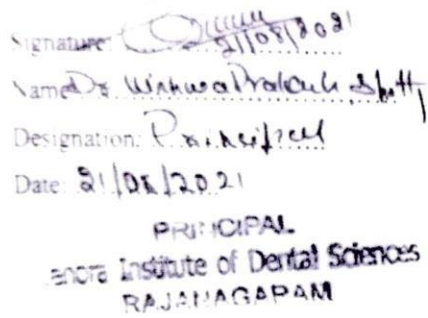 Signature:
21/08/2021
Name Dr Vishwa Prakash Shetty
Designation: Principal
Date: 21/08/2021
PRINCIPAL
Institute of Dental Sciences